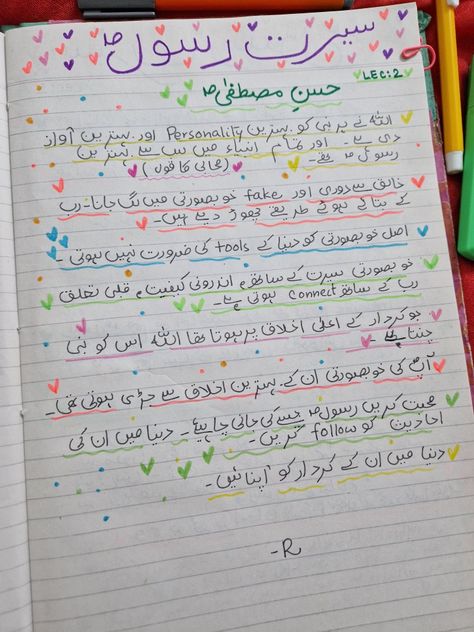 سیرت رسول ﷺ
LEC:2
حسنِ مصطفیٰ ﷺ
اللہ نے ہر نبی کو بہترین Personality اور بہترین آواز
دی ہے۔ اور تمام انبیاء میں سب سے بہترین
رسول ﷺ تھے۔
خالق سے دوری اور fake خوبصورتی میں لگ جانا۔ رب
کے بتائے ہوئے طریقے چھوڑ دیے ہیں۔
اصل خوبصورتی کو دنیا کے tools کی ضرورت نہیں ہوتی۔
خوبصورتی سیرت کے ساتھ، اندرونی کیفیت، قلبی تعلق
رب کے ساتھ connect ہوتی ہے۔
جو کردار کے اعلیٰ اخلاق پر ہوتا تھا اللہ اس کو نبی
چنتا ہے۔
آپؐ کی خوبصورتی ان کے بہترین اخلاق سے جڑی ہوئی تھی۔
محبت کریں رسول ﷺ جیسے کی جانی چاہیے۔ دنیا میں ان کی
احادیث کو follow کریں۔
دنیا میں ان کے کردار کو اپنائیں۔
-R